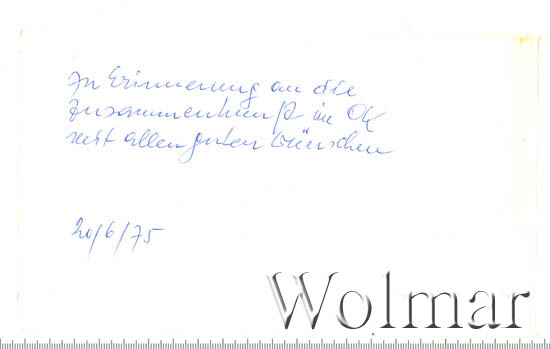 Zu Erinnerung an die
Zusammenkunft im OK
mit allen guten Wünschen
20/6/75
Wolmar